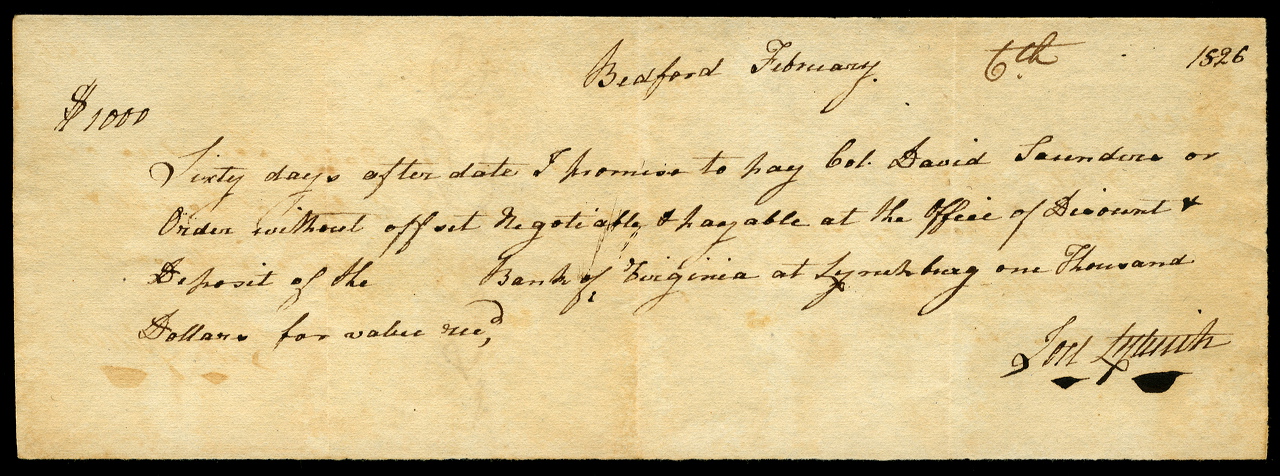 Bedford February 6th 1826
$1000
Sixty days after date I promise to pay Col. David Saunders or
Order without offset Negotiable & payable at the Office of Discount &
Deposit of the Bank of Virginia at Lynchburg one Thousand
Dollars for value recd,
Joel